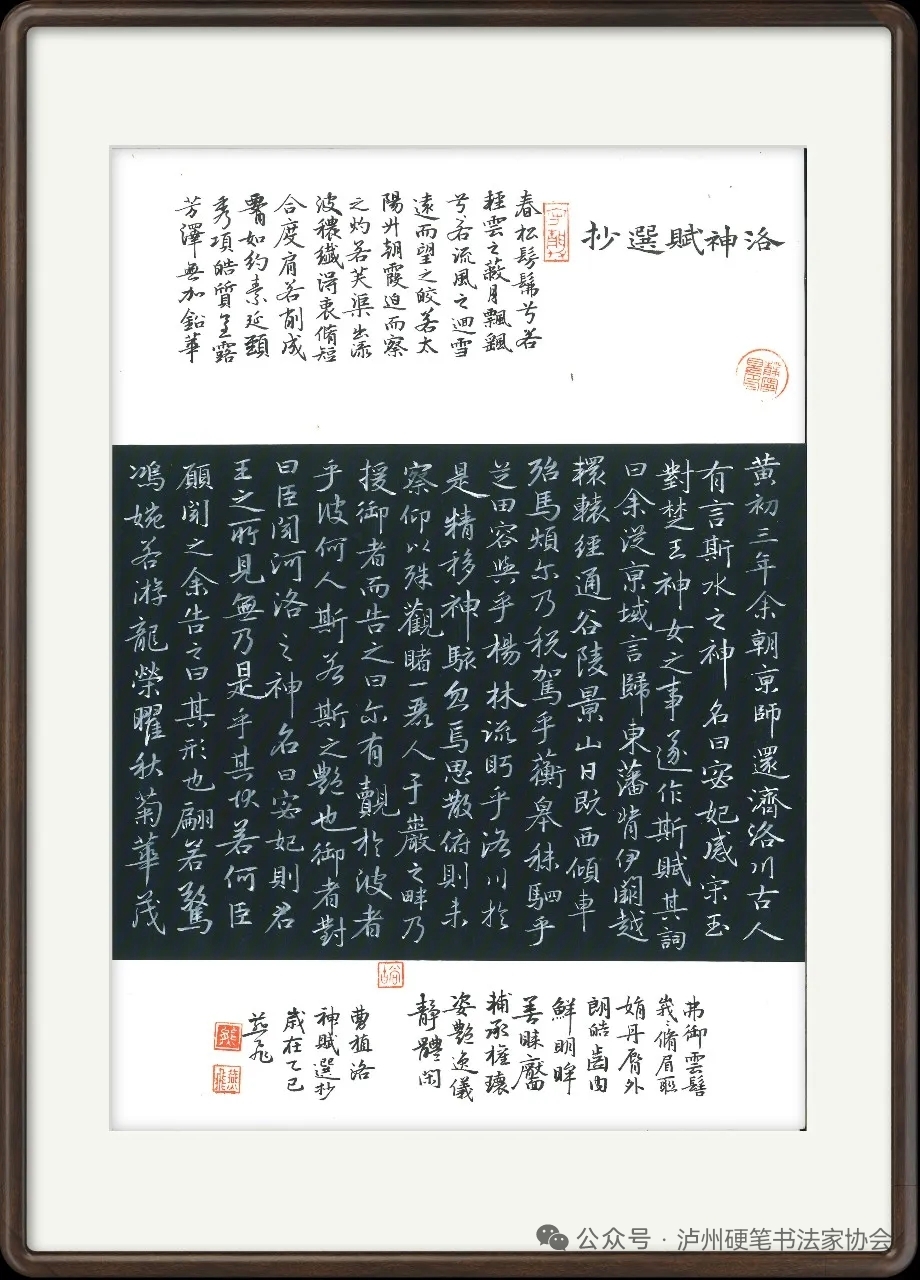 洛神賦選抄
春松髣髴兮若
輕雲之蔽月飄飖
兮若流風之迴雪
遠而望之皎若太
陽升朝霞迫而察
之灼若芙渠出淥
波穠纖得衷脩短
合度肩若削成
腰如約素延頸
秀項皓質呈露
芳澤無加鉛華
黄初三年余朝京師還濟洛川古人
有言斯水之神名曰宓妃感宋玉
對楚王神女之事遂作斯賦其詞
曰余從京域言歸東藩背伊闕越
轘轅經通谷陵景山日既西傾車
殆馬煩尔乃税駕乎蘅皋秣駟乎
芝田容與乎楊林流眄乎洛川於
是精移神駭忽焉思散俯則未
察仰以殊觀睹一麗人于巖之畔乃
援御者而告之曰尔有覿於彼者
乎彼何人斯若斯之艷也御者對
曰臣聞河洛之神名曰宓妃則君
王之所見無乃是乎其状若何臣
願聞之余告之曰其形也翩若驚
鴻婉若游龍榮曜秋菊華茂
弗御雲髻
峩峩脩眉聯
娟丹唇外
朗皓齒内
鮮明眸
善睞靨
輔承權瓌
姿艷逸儀
靜體閑
曹植洛
神賦選抄
歲在乙巳
燕飛
公众号 · 泸州硬笔书法家协会